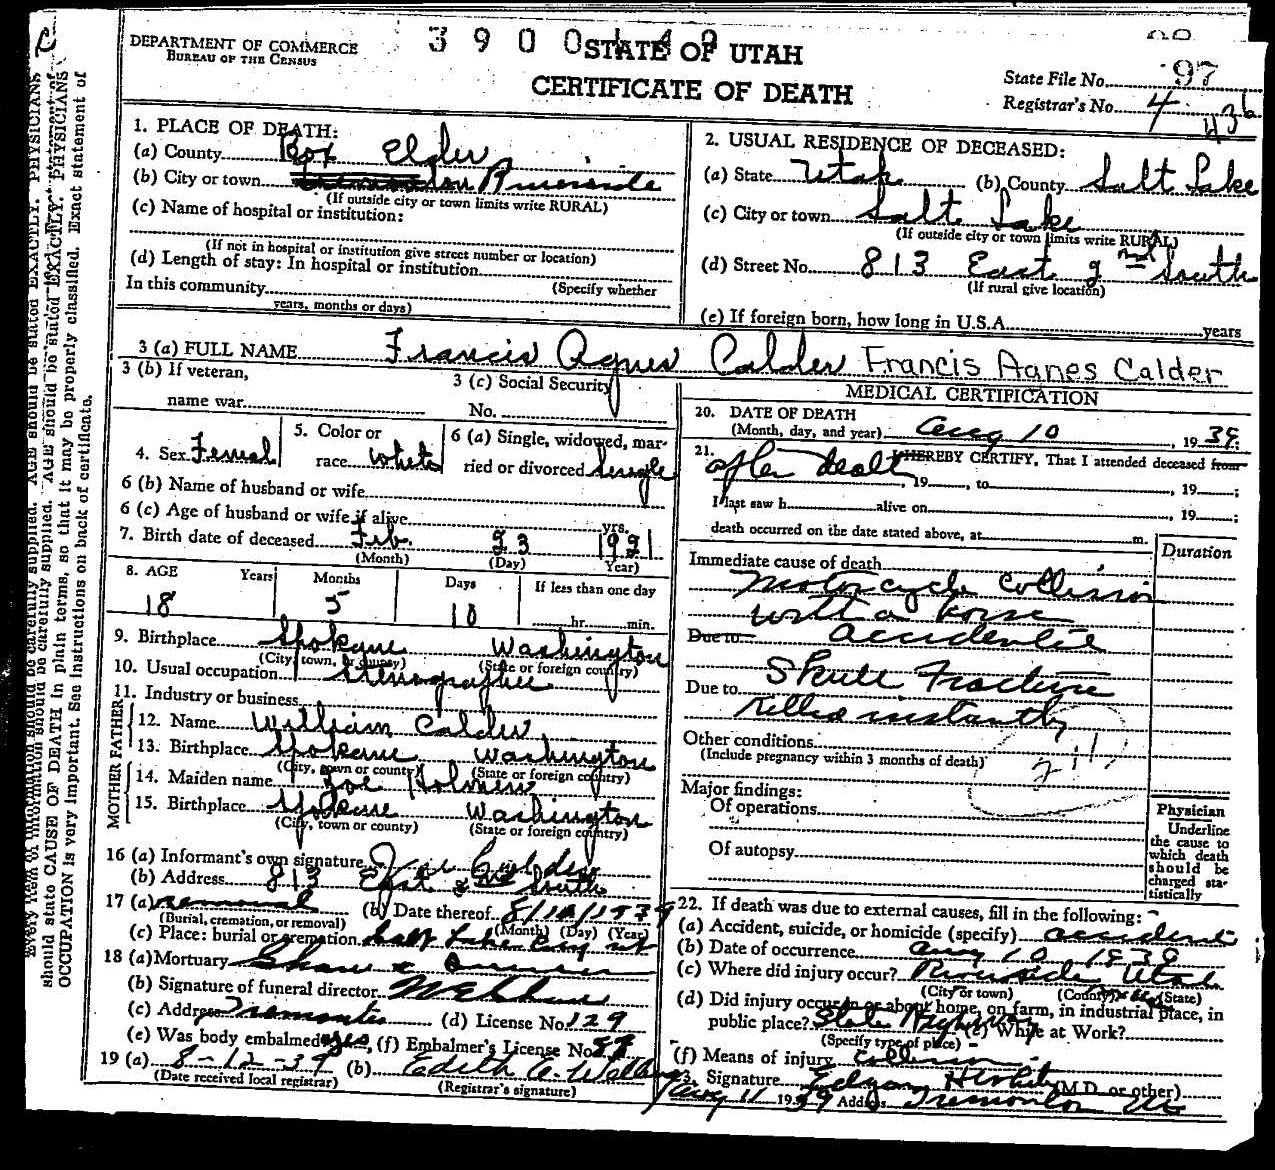 DEPARTMENT OF COMMERCE
BUREAU OF THE CENSUS
STATE OF UTAH
CERTIFICATE OF DEATH
State File No. 97
Registrar's No. 4 436
1. PLACE OF DEATH:
(a) County Box Elder
(b) City or town Riverside
(If outside city or town limits write RURAL)
(c) Name of hospital or institution:
(If not in hospital or institution give street number or location)
(d) Length of stay: In hospital or institution
In this community (Specify whether
years, months or days)
2. USUAL RESIDENCE OF DECEASED:
(a) State Utah (b) County Salt Lake
(c) City or town Salt Lake
(If outside city or town limits write RURAL)
(d) Street No. 813 East 2nd South
(If rural give location)
(e) If foreign born, how long in U.S.A. years
3 (a) FULL NAME Francis Agnes Calder Francis Agnes Calder
3 (b) If veteran,
name war
3 (c) Social Security
No.
4. Sex Femal
5. Color or
race White
6 (a) Single, widowed, mar-
ried or divorced Single
6 (b) Name of husband or wife
6 (c) Age of husband or wife if alive yrs.
7. Birth date of deceased Feb. 23 1921
(Month) (Day) Year)
8. AGE Years Months Days If less than one day
18 5 10 hr. min.
9. Birthplace Spokane Washington
(City, town, or county) (State or foreign country)
10. Usual occupation Stenographer
11. Industry or business
FATHER
12. Name William Calder
13. Birthplace Spokane Washington
(City, town or county) (State or foreign country)
MOTHER
14. Maiden name Zoe
15. Birthplace Spokane Washington
(City, town or county) (State or foreign country)
16 (a) Informant's own signature Calder
(b) Address 813 East 2nd South
17 (a) removal (b) Date thereof 8/10/1939
(Burial, cremation, or removal) (Month) (Day) (Year)
(c) Place: burial or cremation Salt Lake City ut
18 (a) Mortuary Shaw &
(b) Signature of funeral director
(c) Address Tremonton (d) License No. 129
(e) Was body embalmed yes, (f) Embalmer's License No.
19 (a) 8-12-39 (b) Edith E.
(Date received local registrar) (Registrar's signature)
MEDICAL CERTIFICATION
20. DATE OF DEATH
(Month, day, and year) Aug 10, 1939
21. after death I HEREBY CERTIFY, That I attended deceased from
, 19 , to , 19 ;
I last saw h alive on , 19 ;
death occurred on the date stated above, at m.
Duration
Immediate cause of death
Motorcycle Collision
with a horse
Due to accidental
Skull Fracture
Due to
Killed instantly
Other conditions
(Include pregnancy within 3 months of death)
Major findings:
Of operations
Of autopsy
Physician
Underline
the cause to
which death
should be
charged sta-
tistically
22. If death was due to external causes, fill in the following:
(a) Accident, suicide, or homicide (specify) accident
(b) Date of occurrence Aug 10 1939
(c) Where did injury occur? Riverside Utah
(City or town) (County) (State)
(d) Did injury occur in or about home, on farm, in industrial place, in
public place? State Highway (e) While at Work?
(Specify type of place)
(f) Means of injury Collision
23. Signature (M.D. or other)
Aug 11 1939 Address Tremonton Ut
should state CAUSE OF DEATH in plain terms, so that it may be properly classified. Exact statement of
OCCUPATION is very important. See instructions on back of certificate.